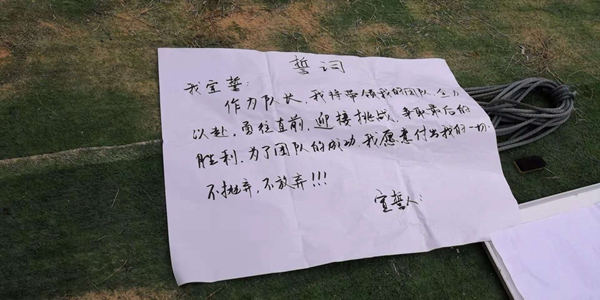 誓词
我宣誓:
作为队长,我将带领我的团队,全力
以赴,勇往直前,迎接挑战,争取最后的
胜利,为了团队的成功,我愿意付出我的一切.
不抛弃,不放弃!!!
宣誓人: